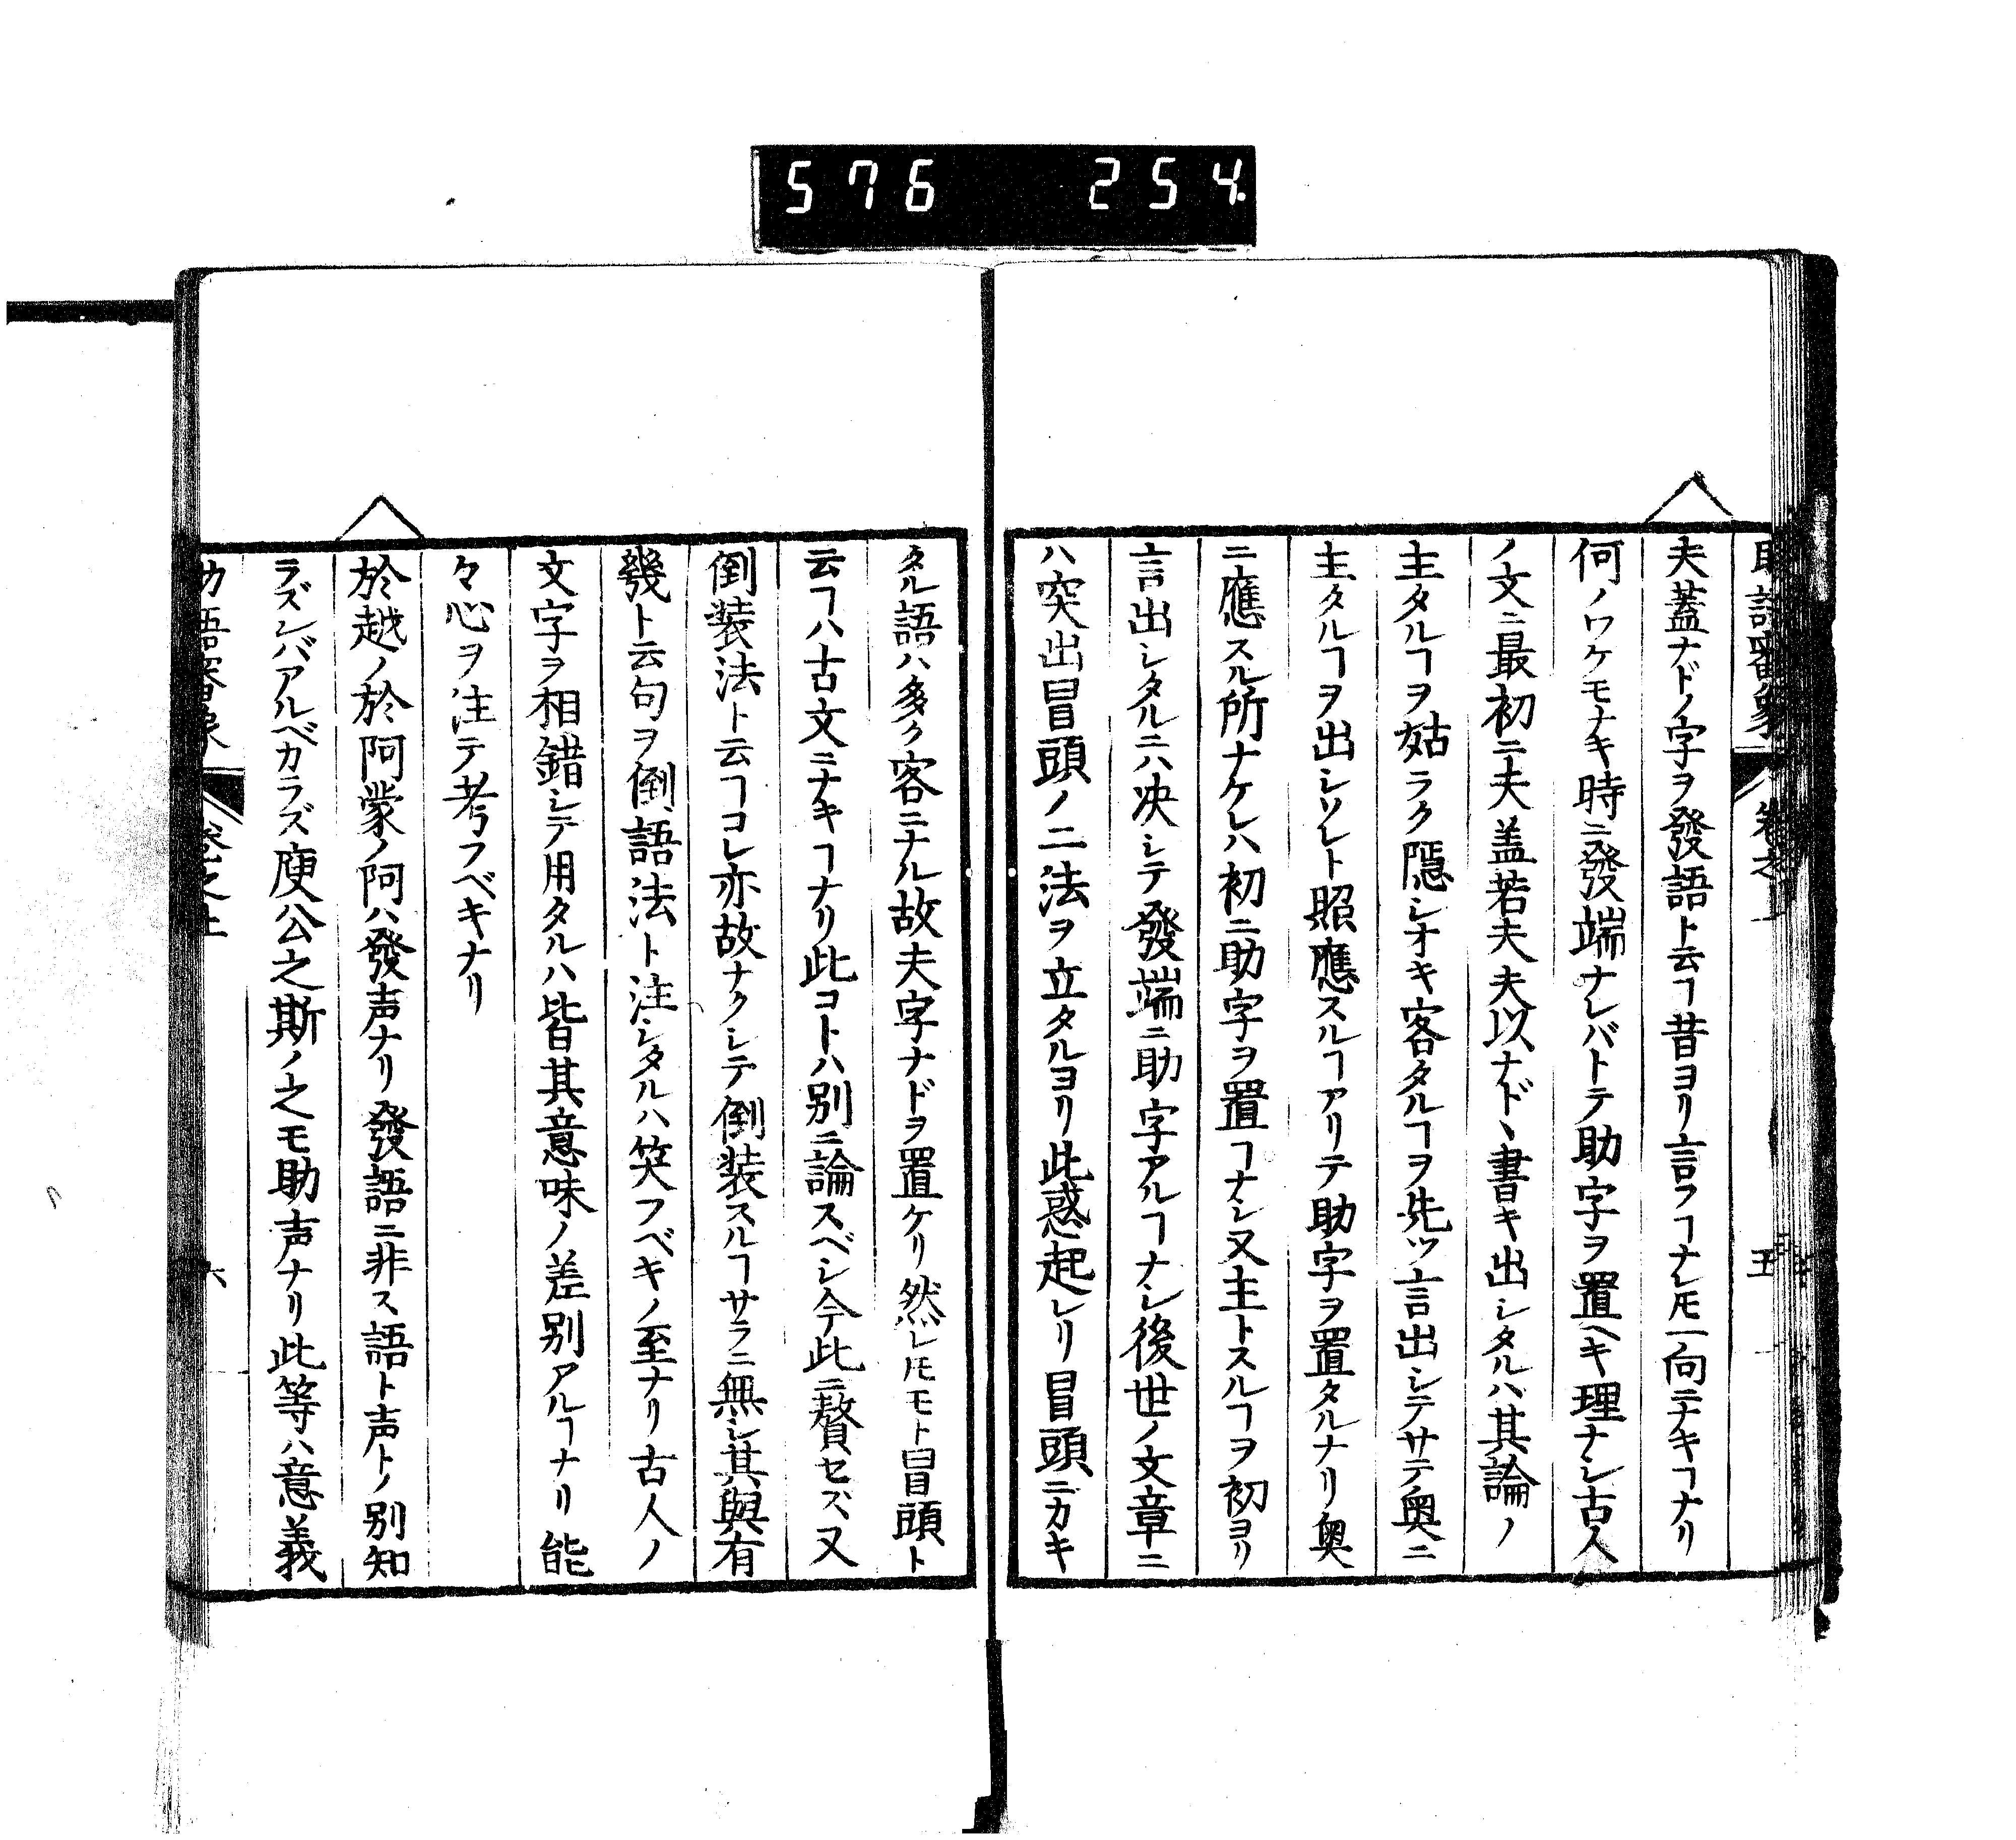 576 254
夫蓋ナドノ字ヲ發語ト云フヿ昔ヨリ言フヿナレ𪜈一向ニナキヿナリ
何ノワケモナキ時ニ發端ナレバトテ助字ヲ置ヘキ理ナシ古人
ノ文ニ最初ニ夫蓋若夫夫以ナド、書キ出シタルハ其論ノ
主タルヿヲ姑ラク隱シオキ客タルヿヲ先ツ言出シテサテ奥ニ
主タルヿヲ出シソレト照應スルヿアリテ助字ヲ置タルナリ奥
ニ應スル所ナケレハ初ニ助字ヲ置ヿナシ又主トスルヿヲ初ヨリ
言出シタルニハ决シテ發端ニ助字アルヿナシ後世ノ文章ニ
ハ突出冒頭ノ二法ヲ立タルヨリ此惑起レリ冒頭ニカキ
タル語ハ多ク客ニナル故夫字ナドヲ置ケリ然レ𪜈モト冒頭ト
云ヿハ古文ニナキヿナリ此コトハ別ニ論スベシ今此ニ贅セズ又
倒装法ト云ヿコレ亦故ナクシテ倒装スルヿサラニ無シ其與有
幾ト云句ヲ倒語法ト注シタルハ笑フベキノ至ナリ古人ノ
文字ヲ相錯シテ用タルハ皆其意味ノ差別アルヿナリ能
々心ヲ注テ考フベキナリ
於越ノ於阿蒙ノ阿ハ發声ナリ發語ニ非ス語ト声トノ別知
ラズンバアルベカラズ庾公之斯ノ之モ助声ナリ此等ハ意義